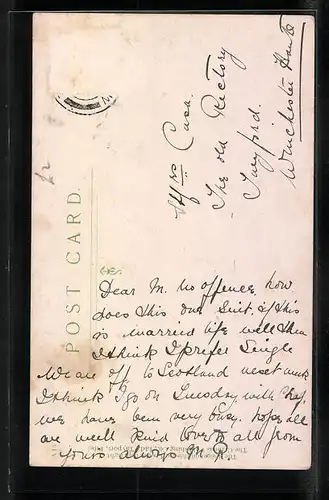 POST CARD.
Mrs Casa.
The old Rectory
Twyford.
Winchester Hants
Dear M. no offence, how
does this one suit, if this
is married life well then
I think I prefer Single
We are off to Scotland next week
I think I go on Tuesday with
we have been very busy. hope all
are well Kind love to all from
yours always M.